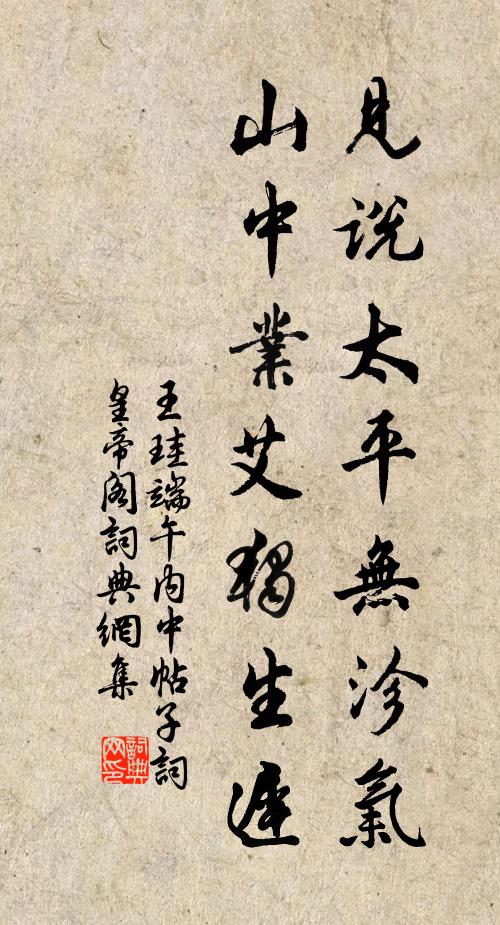 見說太平無沴氣
山中業艾獨生遲
王珪端午內中帖子詞
皇帝閣詞典網集
詞典網印